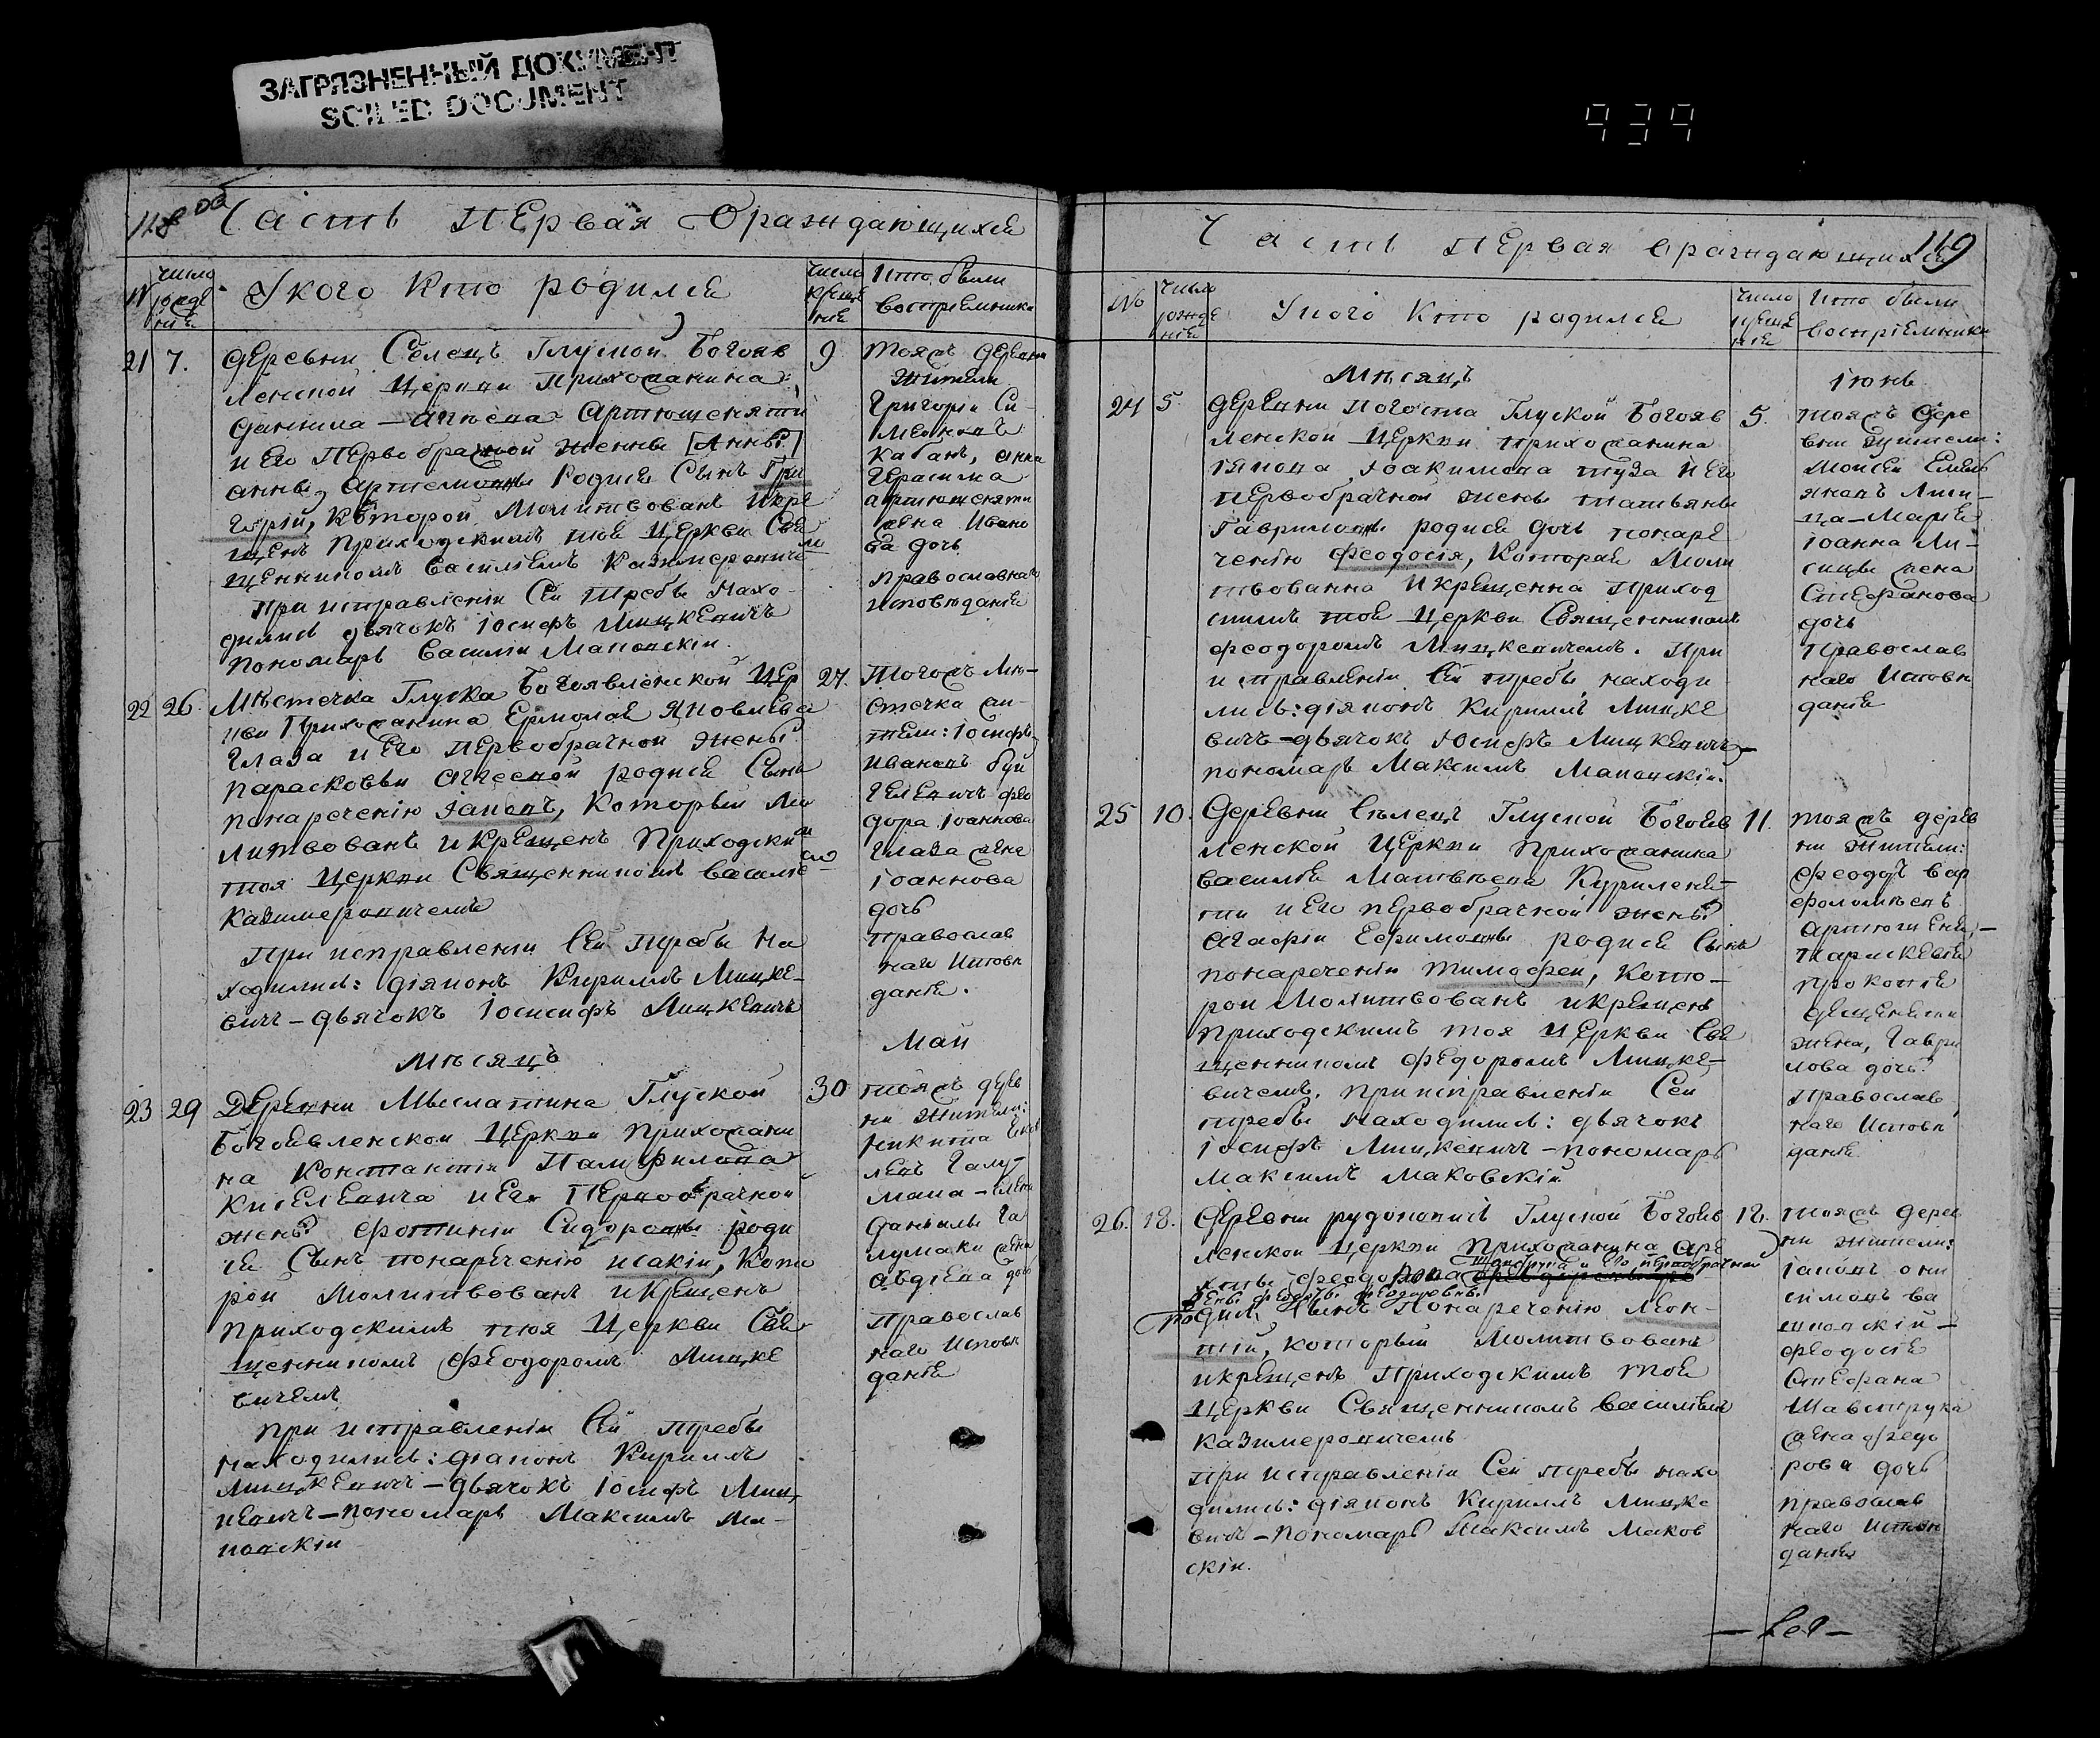 ЗАГРЯЗНЕННЫЙ ДОКУМЕНТ
SOILED DOCUMENT
939
118 об
Часть первая ораждающихся
№
число рожде нія
Укого кто родился
число креще нія
кто были воспріемники
21 7.
деревни Селецъ Глуской Богояв
ленской Церкви Прихожанина
Даніила Артюшеняти
и Его Первобрачной жены [Анны]
анны Артемовны Родися Сынъ Гри
горій, Которой Молитвованъ икре
щенъ Приходскимъ тоя Церкви Свя
щенникомъ Василіемъ Казимеровичем
При исправленіи Сей Требы нахо
дились дьячокъ Іосифъ Мицкевичъ
Пономарь Василіи Маковскіи
9
тояжъ деревни
жители
Григоріи Си
меоновъ
Кабанъ, анна
Герасима
артюшеняти
жена Ивано
ва дочь
православнаго
исповѣданія
22 26.
Мѣстечка Глуска Богоявленской Цер
кви Прихожанина Ермолая Яковлева
Глаза и Его первобрачной жены
Парасковьи родися Сынъ
понареченію Іаковъ, Которыи Мо
литвованъ икрещенъ Приходским
тоя Церкви Священникомъ Василіе
Казимеровичемъ
При исправленіи Сей Требы на
ходились: діяконъ Кириллъ Мицке
вичъ - дьячокъ Іосифъ Мицкевичъ
27.
Тогожъ Мѣ-
стечка жи-
тели: Іосифъ
Ивановъ Буй
Гелевичъ Фео
дора Іоаннова
Глаза жена
Іоаннова
дочь
православ
наго Исповѣ
данія.
Мѣсяцъ
Май
23 29
Деревни Мыслотина Глуской
Богоявленской Церкви Прихожани
на Константіи Памфилова
Киселевича и Его Первобрачной
жены Фотиніи Сидоровны роди
ся Сынъ понареченію Исакіи, Кото
рои Молитвованъ икрещенъ
Приходскимъ тоя Церкви Свя
щенникомъ Феодоромъ Мицке
вичемъ
При исправленіи Сей требы
находились: діаконъ Кириллъ
Мицкевичъ - дьячокъ Іосифъ Миц
кевичъ - пономарь Максимъ Ма-
ковскіи
30
тояжъ дерев
ни жители:
Никита
Галу-
мака - Елена
Даніилы Га
лумаки жена
Авдіева дочь
Православ
наго Исповѣ
данія
119
Часть первая ораждающихся
№
число рожде нія
Укого кто родился
число креще нія
кто были воспріемники
Мѣсяцъ
Іюнь
24 5.
деревни Погоста Глуской Богояв
ленской Церкви прихожанина
Іякова Іоакимова туза и Его
первобрачной жены Татьяны
Гавриловны родися дочь понаре
ченію Феодосія, Которая Моли
твованна И крещенна Приход
скимъ тоя Церкви Священникомъ
Феодоромъ Мицкевичемъ. При
исправленіи Сей требы находи
лись: діяконъ Кириллъ Мицке
вичъ - дьячокъ Іосифъ Мицкевичъ
пономарь Максимъ Маковскіи.
5.
тояжъ дере
вни жители:
Моисеи Емель
яновъ Лиси-
ца - Марія
Іоанна Ли-
сицы жена
Стефанова
дочь
Православ
наго Исповѣ
данія
25 10.
деревни Сѣлецъ Глуской Богояв
ленской Церкви Прихожанина
Василія Матвѣева Куриленя-
ти и Его первобрачной жены
Агафіи Ефимовны родися Сынъ
понареченію Тимофеи, Кото-
рои Молитвованъ икрещенъ
приходскимъ тоя Церкви Свя
щенникомъ Федоромъ Мицке-
вичемъ. При исправленіи Сей
требы находились: дьячокъ
Іосифъ Мицкевичъ - пономарь
Максимъ Маковскій
11.
тояжъ дерев
ни жители:
Феодоръ Вар
фоломѣевъ
Артюшеня, -
Параскевія
Прокопія
жена, Гаври
лова дочь.
Православ
наго Исповѣ
данія
26. 18.
деревни Рудоковичъ Глуской Богояв
ленской Церкви Прихожанина Аре
хты Феодорова
и Его первобрачной
жены Федоровны
родися Сынъ Понареченію Леон-
тій, которыи Молитвованъ
икрещенъ Приходскимъ тоя
Церкви Священникомъ Василіемъ
Казимеровичемъ
При исправленіи Сей требы нахо
дились: діяконъ Кириллъ Мицке
вичъ - пономарь Максимъ Маков
скіи.
18.
тояжъ дерев
ни жители:
Іаковъ они
симовъ Ва
шковскій -
Феодосія
Стефана
Шавструка
жена Федо
рова дочь
православ
наго исповѣ
данія